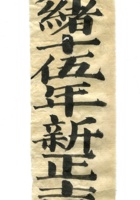 緒十伍年新正吉